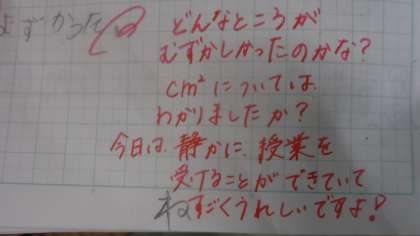 よずかった
どんなところが
むずかしかったのかな?
cm²については
わかりましたか?
今日は、静かに授業を
受けることができていて
ねすごくうれしいですよ!